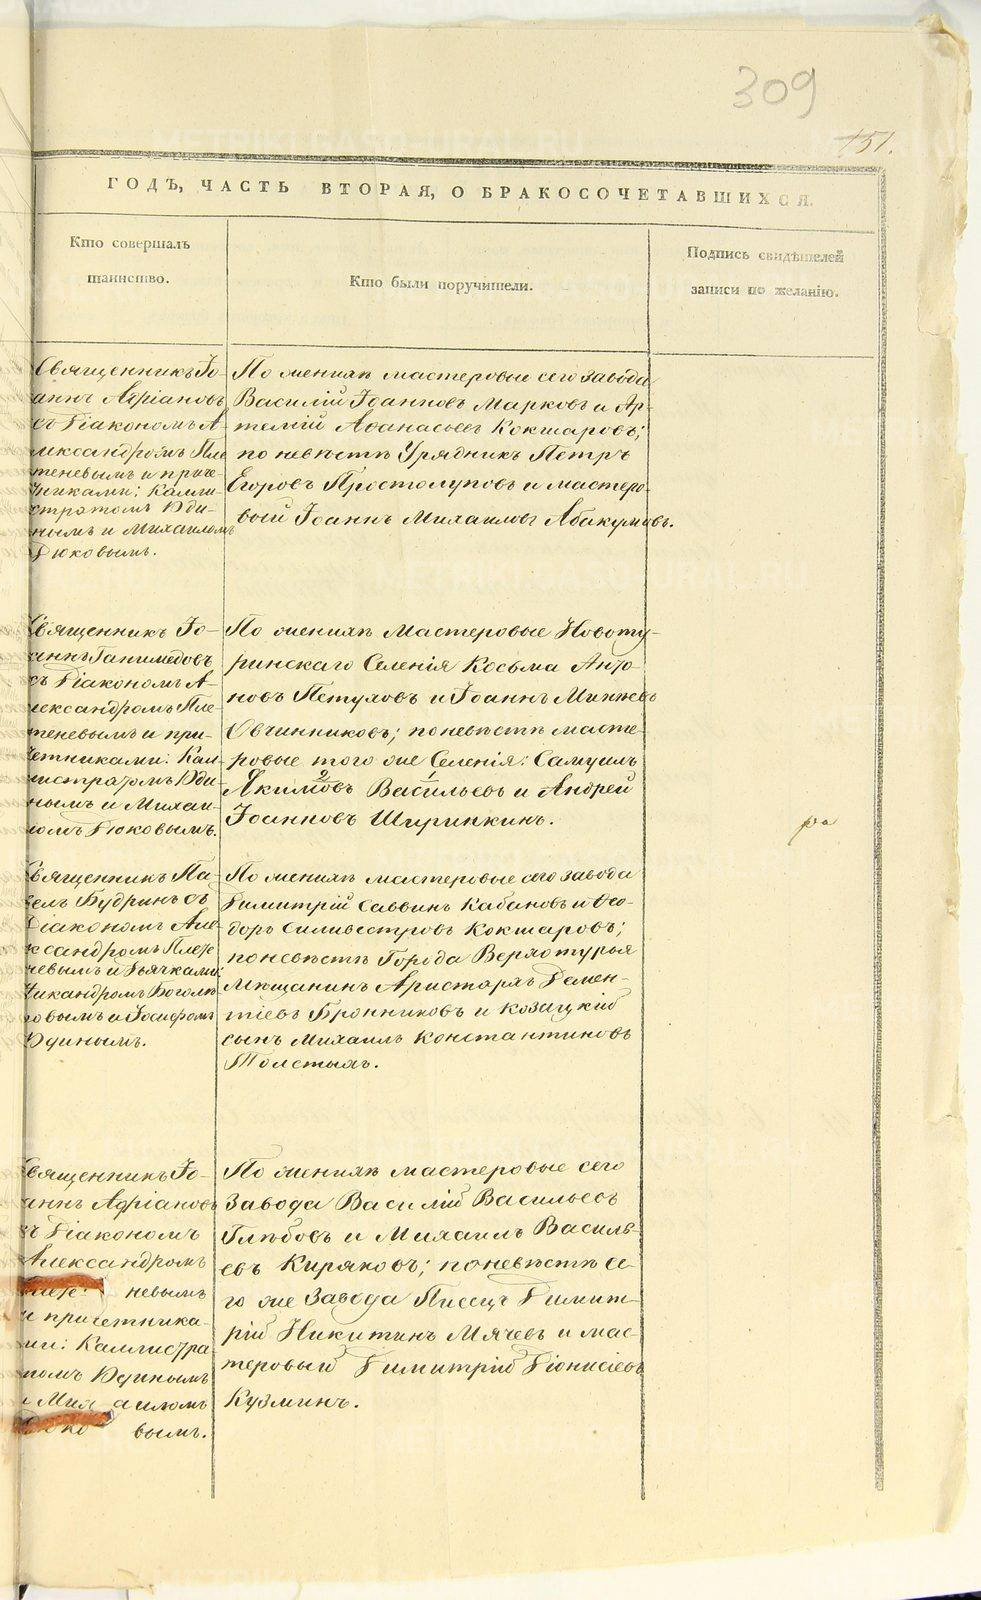 309
151.
ГОДЪ, ЧАСТЬ ВТОРАЯ, О БРАКОСОЧЕТАВШИХСЯ.
Кто совершалъ
таинство.
Кто были поручители.
Подпись свидѣтелей
записи по желанію.
Священникъ Іо-
аннъ Адріановъ
съ Діакономъ А-
лександромъ Пле
теневымъ и приче-
тниками: Калли-
стратомъ Удин-
нымъ и Михаиломъ
Дюковымъ.
По женихѣ мастеровые сего завода
Василій Іоанновъ Марковъ и Ар-
темій Аѳанасьевъ Кокшаровъ;
по невѣстѣ Урядникъ Петръ
Егоровъ Простолуповъ и мастеро-
вый Іоаннъ Михаиловъ Абакумовъ.
Священникъ Іо-
аннъ Ганимедовъ
съ Діакономъ А-
лександромъ Пле-
теневымъ и при-
четниками: Кал-
листратомъ Уди-
нымъ и Михаи-
ломъ Дюковымъ.
По женихѣ Мастеровые Новоту-
ринскаго Селенія Косьма Анто-
новъ Петуховъ и Іоаннъ Михѣевъ
Овчинниковъ; по невѣстѣ масте-
ровые того же Селенія: Самуилъ
2 1
Якимовъ Васильевъ и Андрей
Іоанновъ Ширинкинъ.
Священникъ Па-
велъ Будринъ съ
Діакономъ Але-
ксандромъ Плете
невымъ и Дьячками:
Никандромъ Боголѣ-
повымъ и Іосифомъ
Удинымъ.
По женихѣ мастеровые сего завода
Димитрій Саввинъ Кабановъ и Ѳео-
доръ Силивестровъ Кокшаровъ;
по невѣстѣ Города Верхотурья
Мѣщанинъ Аристархъ Демен-
тіевъ Бронниковъ и козацкій
сынъ Михаилъ Константиновъ
Толстыхъ.
Священникъ Іо-
аннъ Адріановъ
съ Діакономъ
Александромъ
Плете- невымъ
и причетника-
ми: Каллистра-
томъ Удинымъ
и Михаиломъ
Дюковымъ.
По женихѣ мастеровые сего
Завода Василій Васильевъ
Глѣбовъ и Михаилъ Василь-
евъ Киряковъ; по невѣстѣ се-
го же Завода Писецъ Димит-
рій Никитинъ Мячевъ и мас-
теровый Димитрій Діонисіевъ
Кузминъ.